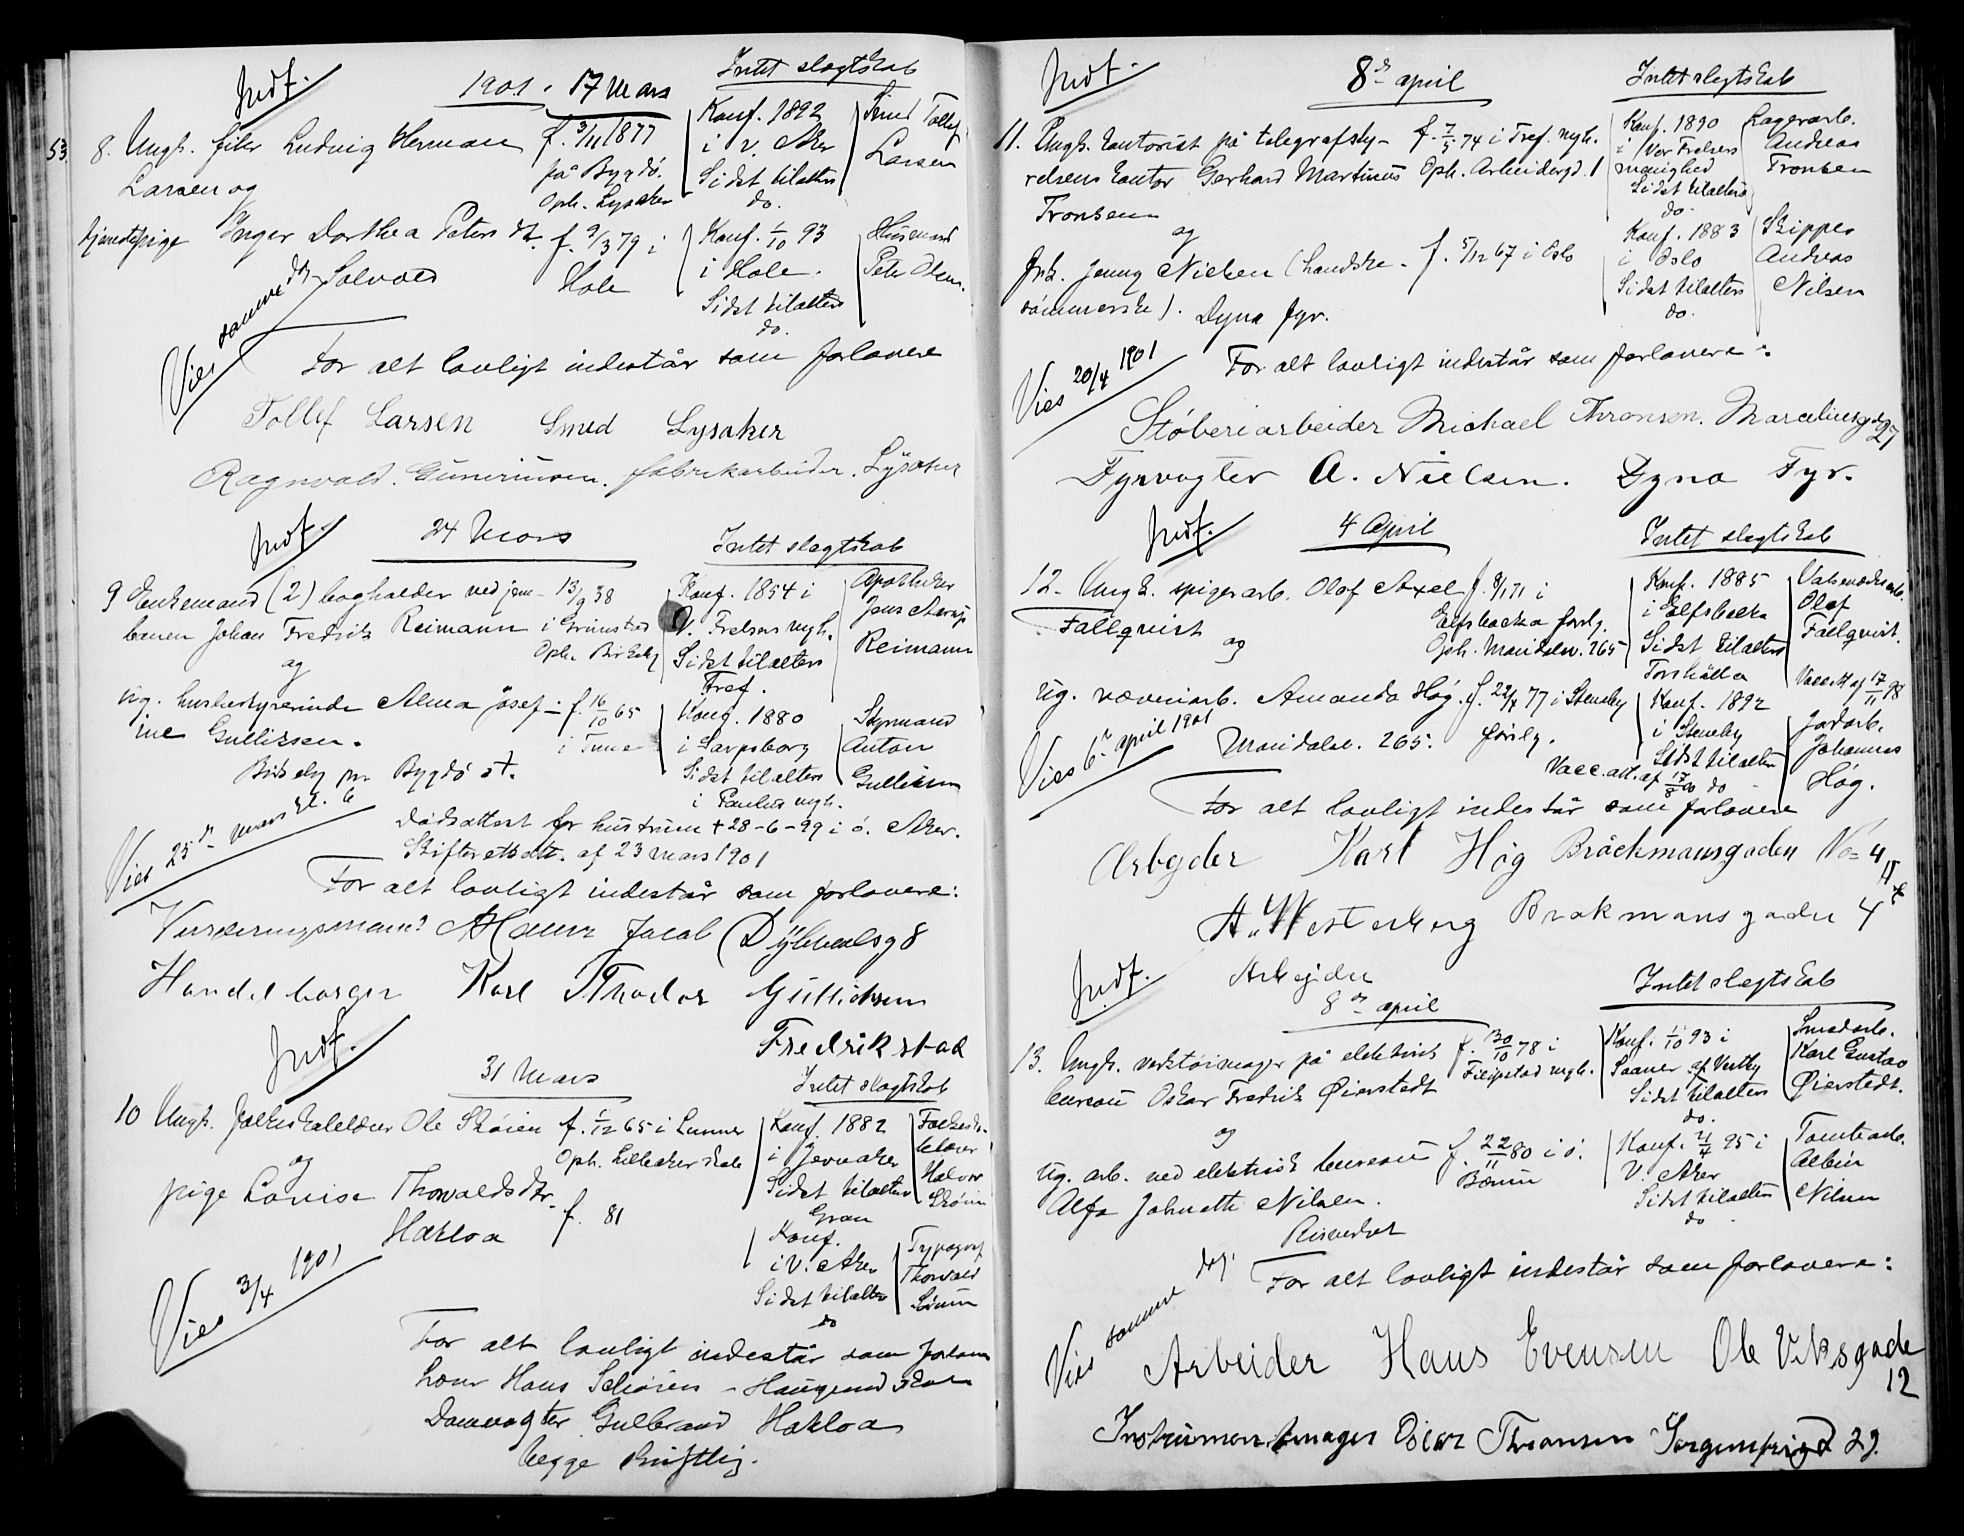 Indf.
1901. 17 Mars
Intet slægtskab
53
8. Ungk. filer Ludvig Herman
Larsen og
f. 3/11 1877
på Bygdö.
Oph. Lysaker
Konf. 1892
i V. Aker
Sidst tilalters
do.
Smed Tollef
Larsen
tjenestepige Inger Dorthea Peters dt.
Solvold
f. 9/3 79 i
Hole
Konf. 1/10 93
i Hole.
Sidst tilalters
do.
Husmand
Peter Olsen.
Vies samme dg.
For alt lovligt indestår som forlovere
Tollef Larsen Smed Lysaker
Ragnvald Guneriusen. fabrikarbeider. Lysaker
Indf.
24 Mars
Intet slægtskab
9 Enkemand (2) bogholder ved jern-
banen Johan Fredrik Reimann
og
13/9 38
i Grimstad
Oph. Birkely
Konf. 1854 i
V. Frelsers mgh.
Sidst tilalters
Tref.
Apotheker
Jens Aarup
Reimann
ug. husbestyrerinde Alma Josef-
ine Gulliksen.
Birkely pr Bygdö st.
f. 16/10 65
i Tune
Konf. 1880
i Sarpsborg
Sidst tilalters
i Paulus mgh.
Styrmand
Anton
Gulliksen
Vies 25d mars kl. 6
Dödsattest for hustruen + 28-6-99 i ö. Aker.
Skifterettsatt. af 23 mars 1901
For alt lovligt indestår som forlovere:
Jacob Dybvalsg 8
Handelsborger Karl Theodor Gullichsen
Fredrikstad
Indf.
31 Mars
Intet slægtskab
10 Ungk. folkeskolelærer Ole Sköien
og
f. 1/12 65 i Lunner
Oph. Lilleaker skole
Konf. 1882
i Jevnaker
Sidst tilalters
Gran
Folkesko-
lelærer
Halvor
Sköien
pige Lovise Thorvaldsdtr.
Hakloa
f. 81
Konf.
i V. Aker
Sidst tilalters
do
Typograf
Thorvald
Vies 3/4 1901
For alt lovligt indestår som forlovere
Hans Schöien - Haugerud skole
Damvogter Gulbrand Hakloa
begge skriftlig.
Indf.
8de april
Intet slægtskab
11. Ungk. kontorist på telegrafsty-
relsens kontor Gerhard Martinus
Tronsen
og
f. 7/5 74 i Tref. mgh.
Oph. Arbeidergd. 1
Konf. 1890
i Vor Frelsers
menighed
Sidst tilalters
do.
Lagerarb.
Andreas
Tronsen
Frk. Jenny Nielsen (handske-
sömmerske). Dyna fyr.
f. 5/12 67 i Oslo
Konf. 1883
i Oslo
Sidst tilalters
do.
Skipper
Andreas
Nilsen
Vies 20/4 1901
For alt lovligt indestår som forlovere:
Støberiarbeider Michael Thronsen. Marcelliusgd 27
Fyrvogter A. Nielsen. Dyna Fyr.
Indf.
4 April
Intet slægtskab
12. Ungk. spigerarb. Olof Axel
Fallqvist
og
f. 8/1 71 i
Elfsbacka försg.
Oph. Maridalsv. 265
Konf. 1885
i Elfsbacka
Sidst tilalters
Torshälla
Valsverksarb.
Olof
Fallqvist.
Vacc. att af 17/11 98
ug. væveriarb. Amanda Høg.
Maridalsv. 265.
f. 22/4 77 i Steneby
försg.
Konf. 1892
i Steneby
Sidst tilalters
do
Vacc. att. af 17/8 80
Jordarb.
Johannes
Høg.
Vies 6te april 1901
For alt lovligt indestår som forlovere
Arbyder Karl Høg Bråckmansgaden No 4 II
A. Westerberg Brokmansgaden 4
Arbejder
Indf.
8de april
Intet slægtskab
13. Ungk. verktöimager på elektrisk
bureau Oskar Fredrik Øierstedt
og
f. 30/10 78 i
Filipstad mgh.
Konf. 1/10 93 i
Saaner af Vestby
Sidst tilalters
do.
Smedarb.
Karl Gustav
Øierstedt.
ug. arb. ved elektrisk bureau
Alfa Johnette Nilsen.
f. 22/11 80 i ö.
Bærum
Konf. 21/4 95 i
V. Aker
Sidst tilalters
do
Tomtearb.
Albin
Nilsen
Vies samme dg.
For alt lovligt indestår som forlovere:
Arbeider Hans Evensen Ole Viksgade
12
Instrumentmager Oscar Thronsen Sorgenfrigd 29.